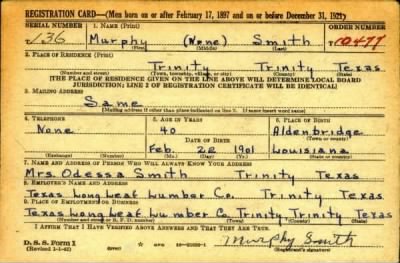 REGISTRATION CARD—(Men born on or after February 17, 1897 and on or before December 31, 1921)
SERIAL NUMBER 1. NAME (Print) ORDER NUMBER
136 Murphy (None) Smith 10477
(First) (Middle) (Last)
2. PLACE OF RESIDENCE (Print)
Trinity Trinity Texas
(Number and street) (Town, township, village, or city) (County) (State)
[THE PLACE OF RESIDENCE GIVEN ON THE LINE ABOVE WILL DETERMINE LOCAL BOARD
JURISDICTION; LINE 2 OF REGISTRATION CERTIFICATE WILL BE IDENTICAL]
3. MAILING ADDRESS
Same
[Mailing address if other than place indicated on line 2. If same insert word same]
4. TELEPHONE 5. AGE IN YEARS 6. PLACE OF BIRTH
None 40 Aldenbridge
DATE OF BIRTH (Town or county)
Feb. 22 1901 Louisiana
(Exchange) (Number) (Mo.) (Day) (Yr.) (State or country)
7. NAME AND ADDRESS OF PERSON WHO WILL ALWAYS KNOW YOUR ADDRESS
Mrs. Odessa Smith Trinity Texas
8. EMPLOYER'S NAME AND ADDRESS
Texas Long Leaf Lumber Co. Trinity Texas
9. PLACE OF EMPLOYMENT OR BUSINESS
Texas Long Leaf Lumber Co Trinity Trinity Texas
(Number and street or R. F. D. number) (Town) (County) (State)
I AFFIRM THAT I HAVE VERIFIED ABOVE ANSWERS AND THAT THEY ARE TRUE.
D. S. S. Form 1
(Revised 1-1-42) (over) Murphy Smith
(Registrant's signature)